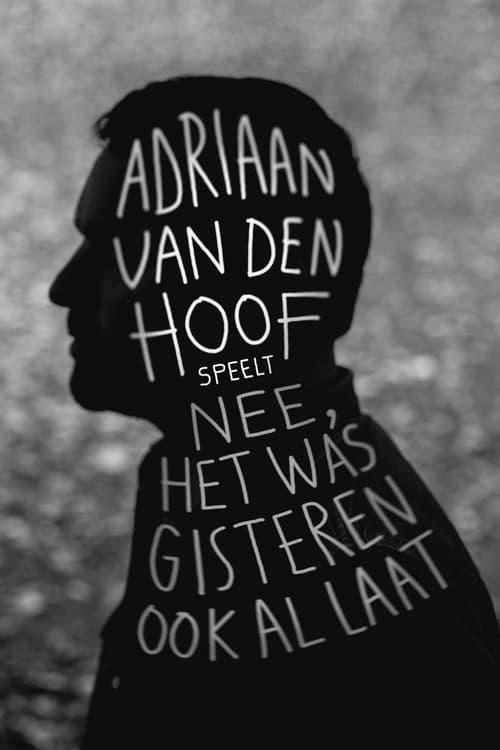 ADRIAAN
VAN DEN
HOOF
SPEELT
NEE,
HET WAS
GISTEREN
OOK AL LAAT